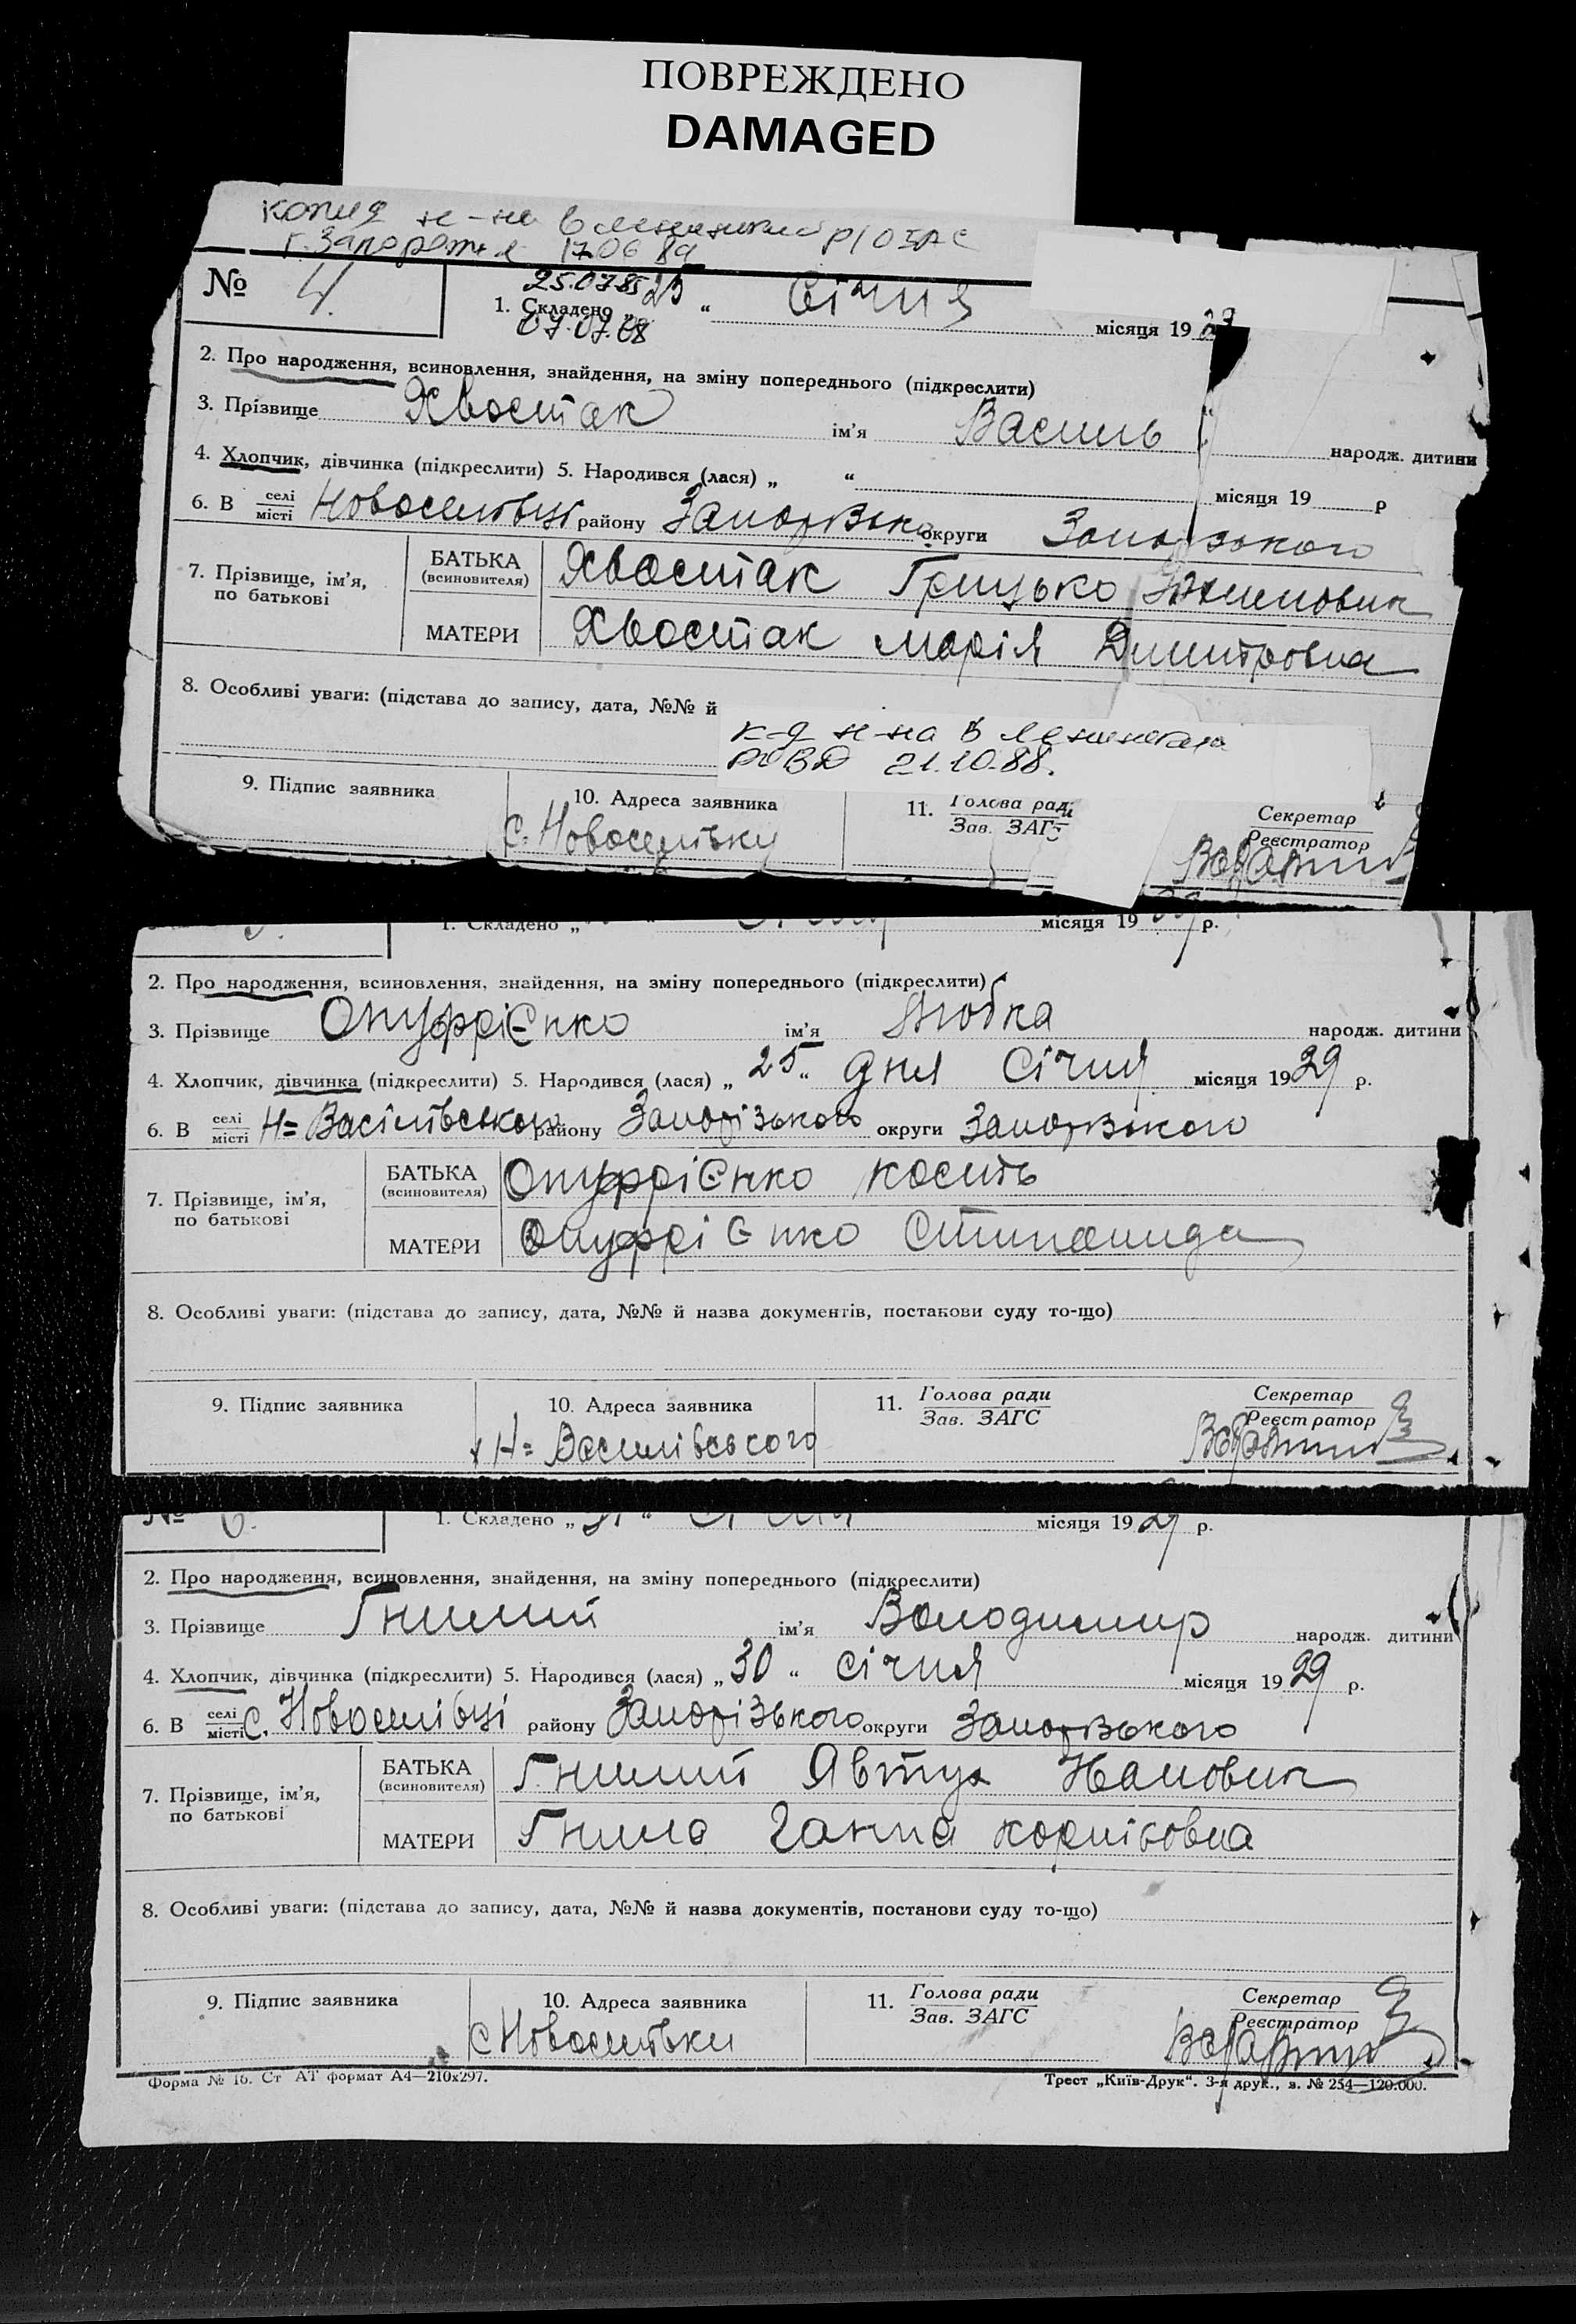 ПОВРЕЖДЕНО
DAMAGED
копия н-на в Ленинский Р/ОЗАГС
г. Запорожья 17 06 89
№ 4.
25.07.85
1. Складено „ 25 “ Січня місяця 19 29
07.07.88
2. Про народження, всиновлення, знайдення, на зміну попереднього (підкреслити)
3. Прізвище Хвостак ім’я Василь народж. дитини
4. Хлопчик, дівчинка (підкреслити) 5. Народився (лася) „ “ місяця 19 р
6. В селі місті Новоселівці району округи
7. Прізвище, ім’я, по батькові
БАТЬКА (всиновителя) Хвостак Грицько
МАТЕРИ Хвостак Марія Дмитровна
8. Особливі уваги: (підстава до запису, дата, №№ й
к-я н-на в Ленинский
РОВД 21.10.88.
9. Підпис заявника 10. Адреса заявника 11. Голова ради Зав. ЗАГС Секретар Реєстратор
с. Новоселівку
1. Складено „ місяця 19 29 р.
2. Про народження, всиновлення, знайдення, на зміну попереднього (підкреслити)
3. Прізвище Онуфрієнко ім’я Любка народж. дитини
4. Хлопчик, дівчинка (підкреслити) 5. Народився (лася) „ 25 “ дня Січня місяця 19 29 р.
6. В селі місті Н=Васілівського району Запорізького округи Запорізького
7. Прізвище, ім’я, по батькові
БАТЬКА (всиновителя) Онуфрієнко Кость
МАТЕРИ Онуфрієнко
8. Особливі уваги: (підстава до запису, дата, №№ й назва документів, постанови суду то-що)
9. Підпис заявника 10. Адреса заявника 11. Голова ради Зав. ЗАГС Секретар Реєстратор
Н=Василівського
№ 6. 1. Складено „ “ Січня місяця 19 29 р.
2. Про народження, всиновлення, знайдення, на зміну попереднього (підкреслити)
3. Прізвище Гнилий ім’я Володимир народж. дитини
4. Хлопчик, дівчинка (підкреслити) 5. Народився (лася) „ 30 “ Січня місяця 19 29 р.
6. В селі місті с. Новоселівці району Запорізького округи Запорізького
7. Прізвище, ім’я, по батькові
БАТЬКА (всиновителя) Гнилий Явтух
МАТЕРИ Гнила Ганна
8. Особливі уваги: (підстава до запису, дата, №№ й назва документів, постанови суду то-що)
9. Підпис заявника 10. Адреса заявника 11. Голова ради Зав. ЗАГС Секретар Реєстратор
с Новоселівки
Форма № 16. Ст АТ формат А4—210х297. Трест „Київ-Друк“. 3-я друк., з. № 254—120.000.